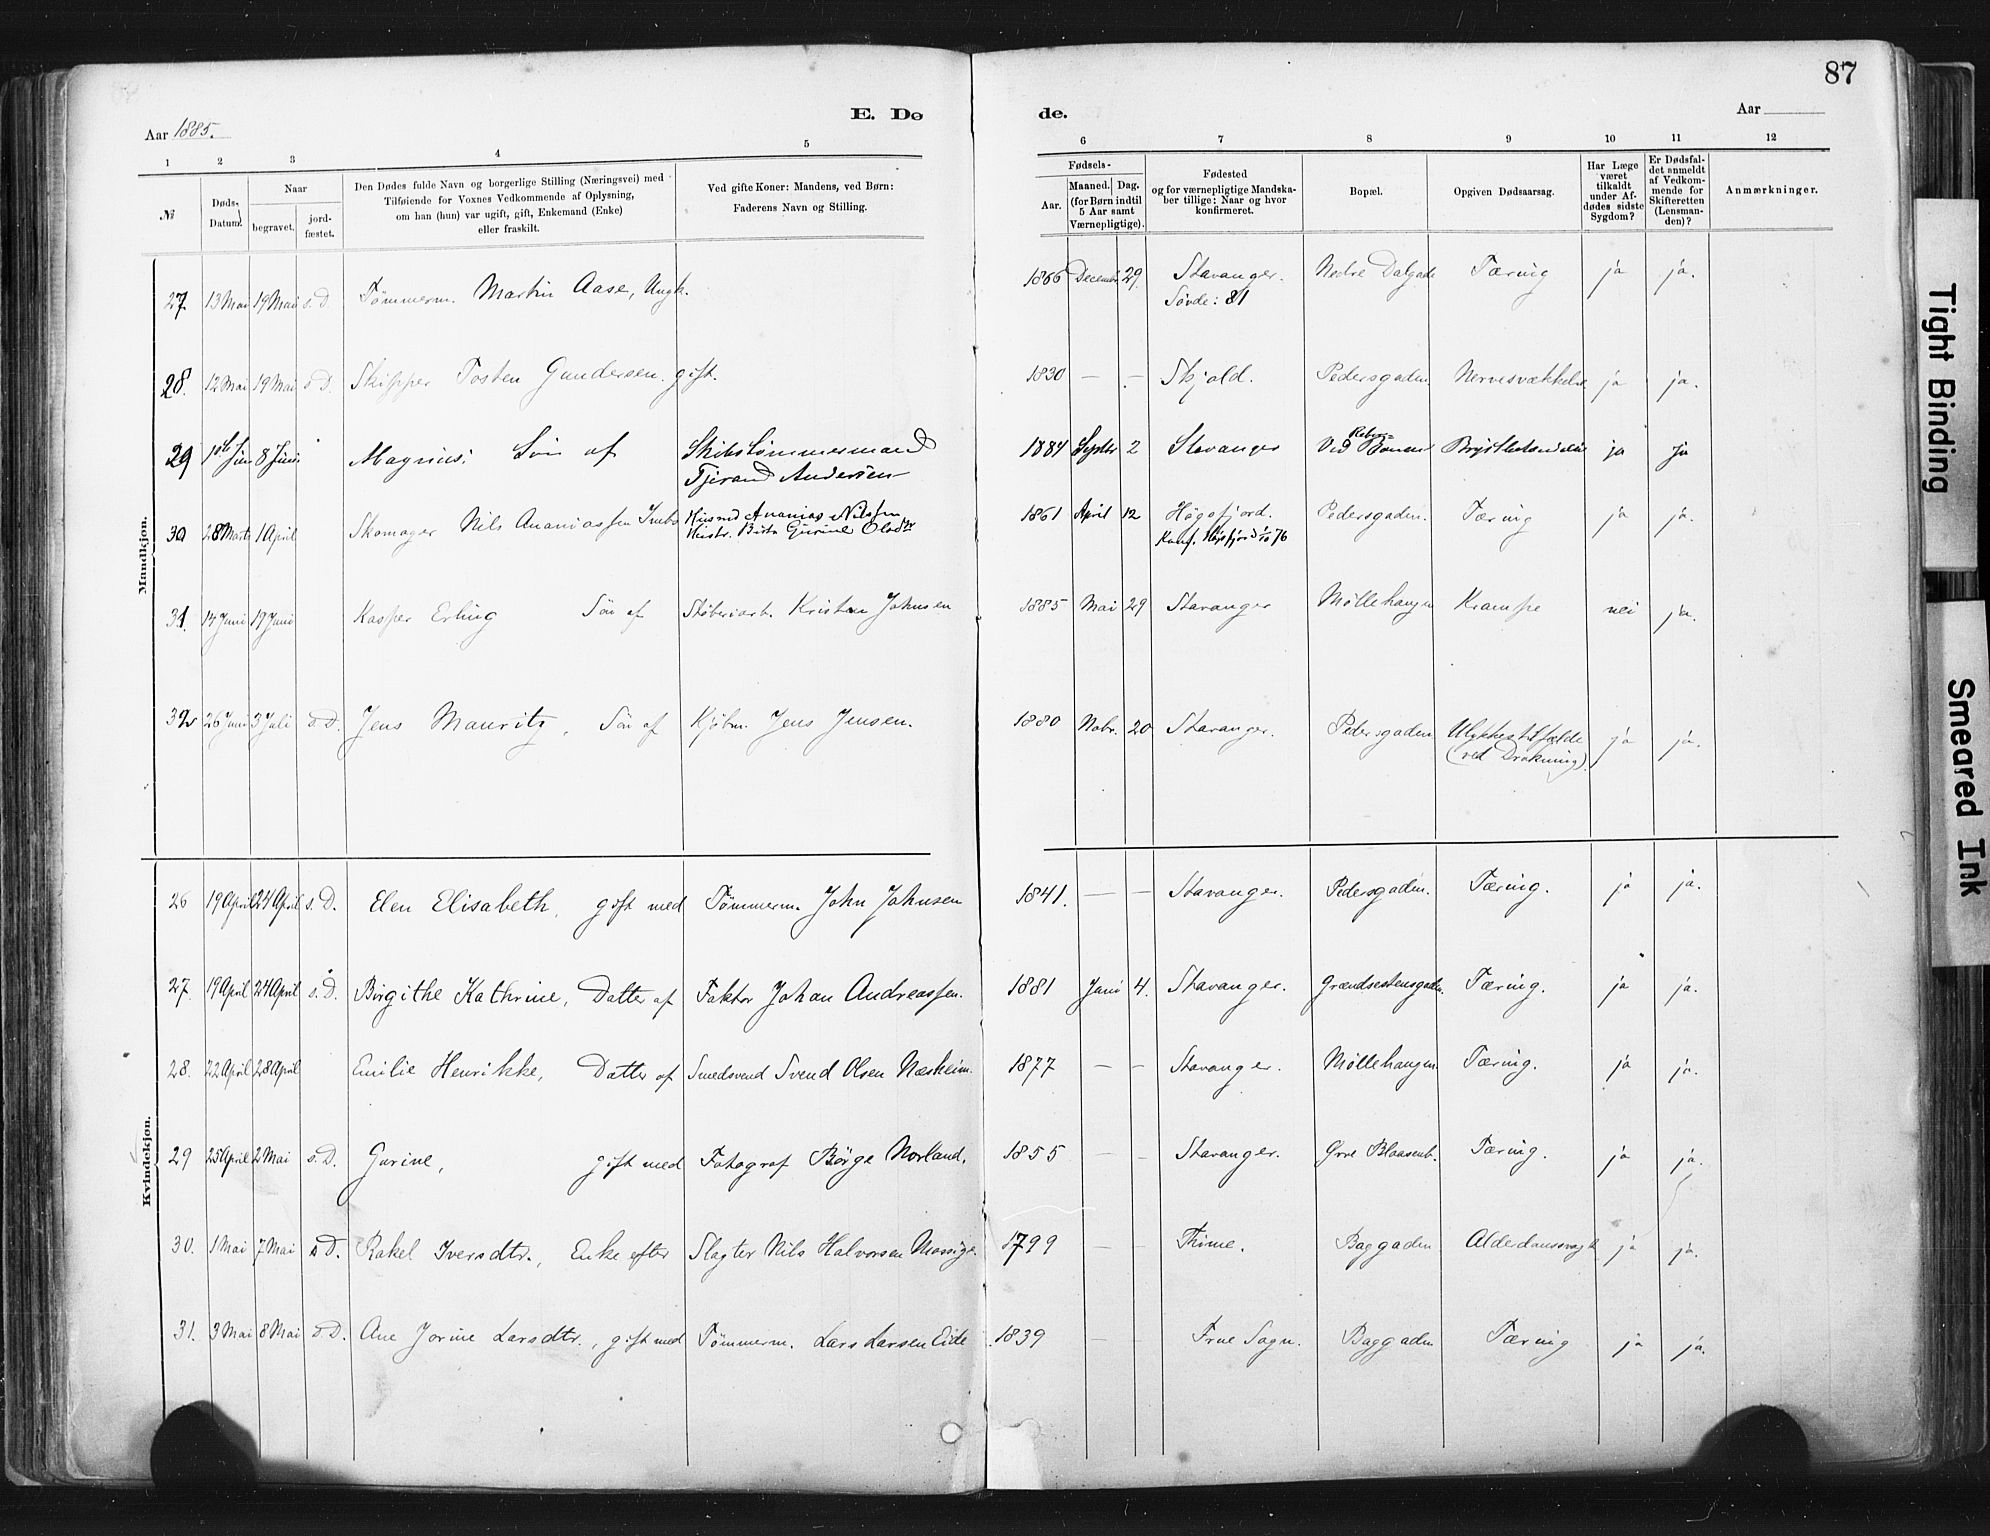 87
E. Dø de.
Aar 1885. Aar
1 2 3 4 5 6 7 8 9 10 11 12
№ Døds-Datum. Naar begravet. jordfæstet. Den Dødes fulde Navn og borgerlige Stilling (Næringsvei) med Tilføiende for Voxnes Vedkommende af Oplysning, om han (hun) var ugift, gift, Enkemand (Enke) eller fraskilt. Ved gifte Koner: Mandens, ved Børn: Faderens Navn og Stilling. Fødsels- Aar. Maaned. Dag. (for Børn indtil 5 Aar samt Værnepligtige). Fødested og for værnepligtige Mandskaber tillige: Naar og hvor konfirmeret. Bopæl. Opgiven Dødsaarsag. Har Læge været tilkaldt under Afdødes sidste Sygdom? Er Dødsfaldet anmeldt af Vedkommende for Skifteretten (Lensmanden)? Anmærkninger.
Mandkjøn.
27. 13 Mai 19 Mai s. D. Tømmerm. Martin Aase, Ungk. 1866 Decembr. 29. Stavanger. Nedre Dalgade Tæring ja ja.
Søvde: 81
28. 12 Mai 19 Mai s. D. Skipper Tosten Gundersen. gift. 1830 — — Skjold. Pedersgaden. Nervesvækkelse ja ja.
29 1ste Juni 8 Juni Magnus; Søn af Skibstømmermand 1884 Septbr 2 Stavanger Ved Reber=Banen ja ja
Tjerand Andersen
30 28 Marts 1 April Skomager Nils Ananiassen Husmd Ananias Nilssen 1861 April 12 Høgsfjord. Pedersgaden. Tæring ja ja.
Hustr. Berta Gurine Olsdtr Konf. Høgsfjord 1/10 76
31. 14 Juni 17 Juni Kasper Erling Søn af Støberiarb. Kristen Johnsen 1885 Mai 29 Stavanger Møllehaugen Krampe nei ja.
32 26 Juni 3 Juli s. D. Jens Mauritz, Søn af Kjøbm. Jens Jensen. 1880 Nobr. 20 Stavanger. Pedersgaden Ulykkestilfælde ja ja.
(ved Drukning).
Kvindekjøn.
26 19 April 24 April s. D. Elen Elisabeth, gift med Tømmerm. John Johnsen 1841. — — Stavanger. Pedersgaden. Tæring. ja ja.
27. 19 April 24 April s. D. Birgithe Kathrine, Datter af Faktor Johan Andreassen. 1881 Juni 4. Stavanger. Grændsestensgaden. Tæring. ja ja.
28. 22 April 28 April Emilie Henrikke, Datter af Smedsvend Svend Olsen Næsheim. 1877 — — Stavanger. Møllehaugen. Tæring. ja ja.
29 25 April 2 Mai s. D. Gurine, gift med Fotograf Børge Norland, 1855 — — Stavanger. Øvre Blaasenb. Tæring. ja ja.
30. 1 Mai 7 Mai s D. Rakel Iversdtr., Enke efter Slagter Nils Halvorsen Mossige. 1799 — — Thime. Baggaden Alderdomssvagh. ja ja.
31. 3 Mai 8 Mai s. D. Ane Jorine Larsdtr., gift med Tømmerm. Lars Larsen Eide 1839 — — Frue Sogn. Baggaden Tæring ja ja.
Tight Binding
Smeared Ink